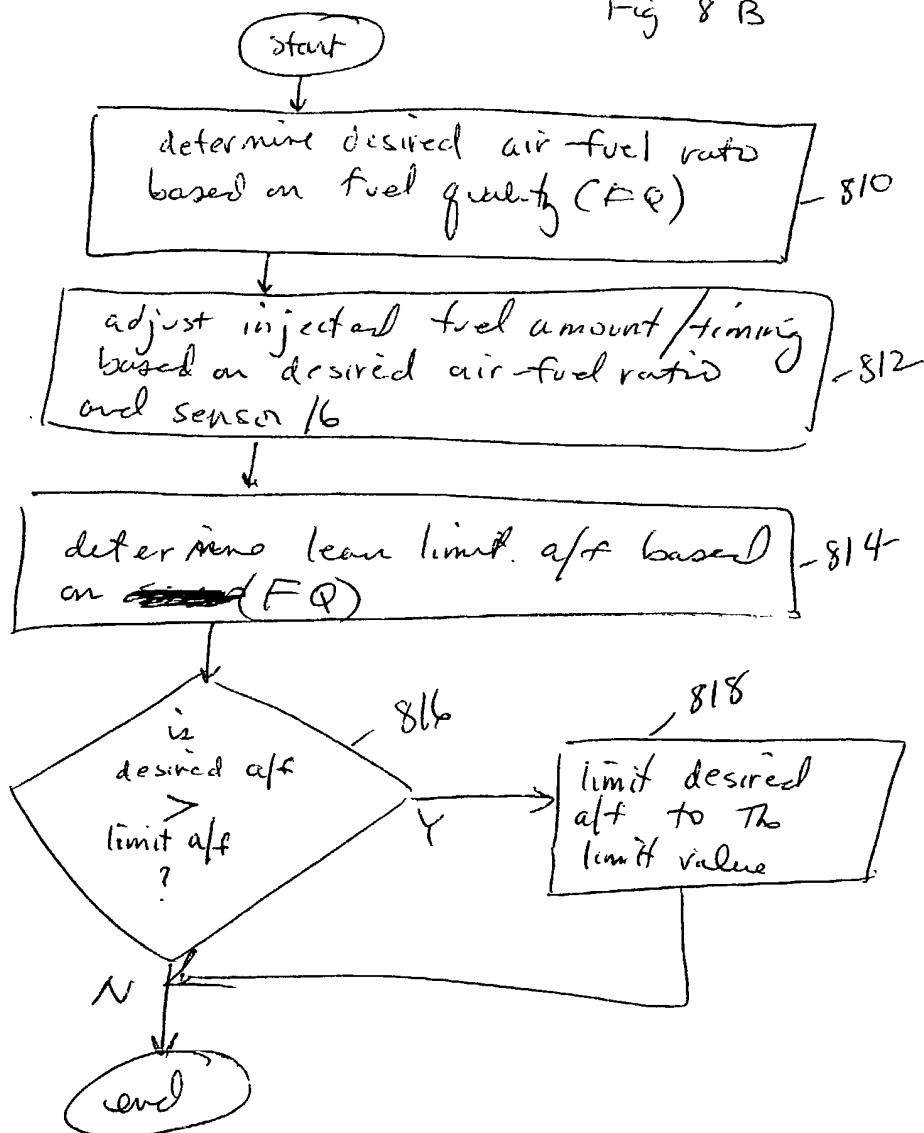 Fig 8 B
start
determine desired air-fuel ratio
based on fuel quality (FQ)
810
adjust injected fuel amount/timing
based on desired air-fuel ratio
and sensor 16
812
determine lean limit a/f based
on (FQ)
814
is
desired a/f
>
limit a/f
?
816
Y
818
limit desired
a/f to the
limit value
N
end